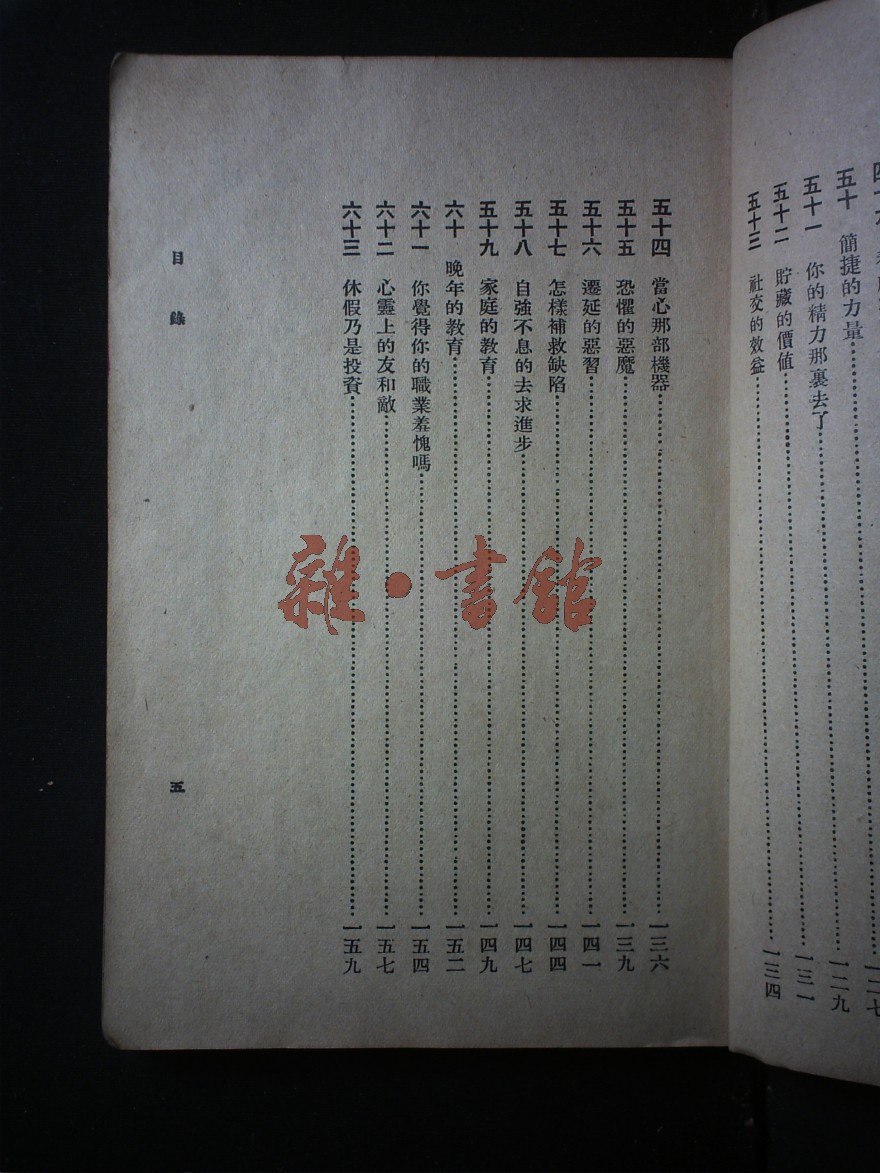 五十 簡捷的力量 一二九
五十一 你的精力那裏去了 一三一
五十二 貯藏的價值
五十三 社交的效益 一三四
五十四 當心那部機器 一三六
五十五 恐懼的惡魔 一三九
五十六 遷延的惡習 一四一
五十七 怎樣補救缺陷 一四四
五十八 自強不息的去求進步 一四七
五十九 家庭的教育 一四九
六十 晚年的教育 一五二
六十一 你覺得你的職業羞愧嗎 一五四
六十二 心靈上的友和敵 一五七
六十三 休假乃是投資 一五九
目錄
五
雜·書館